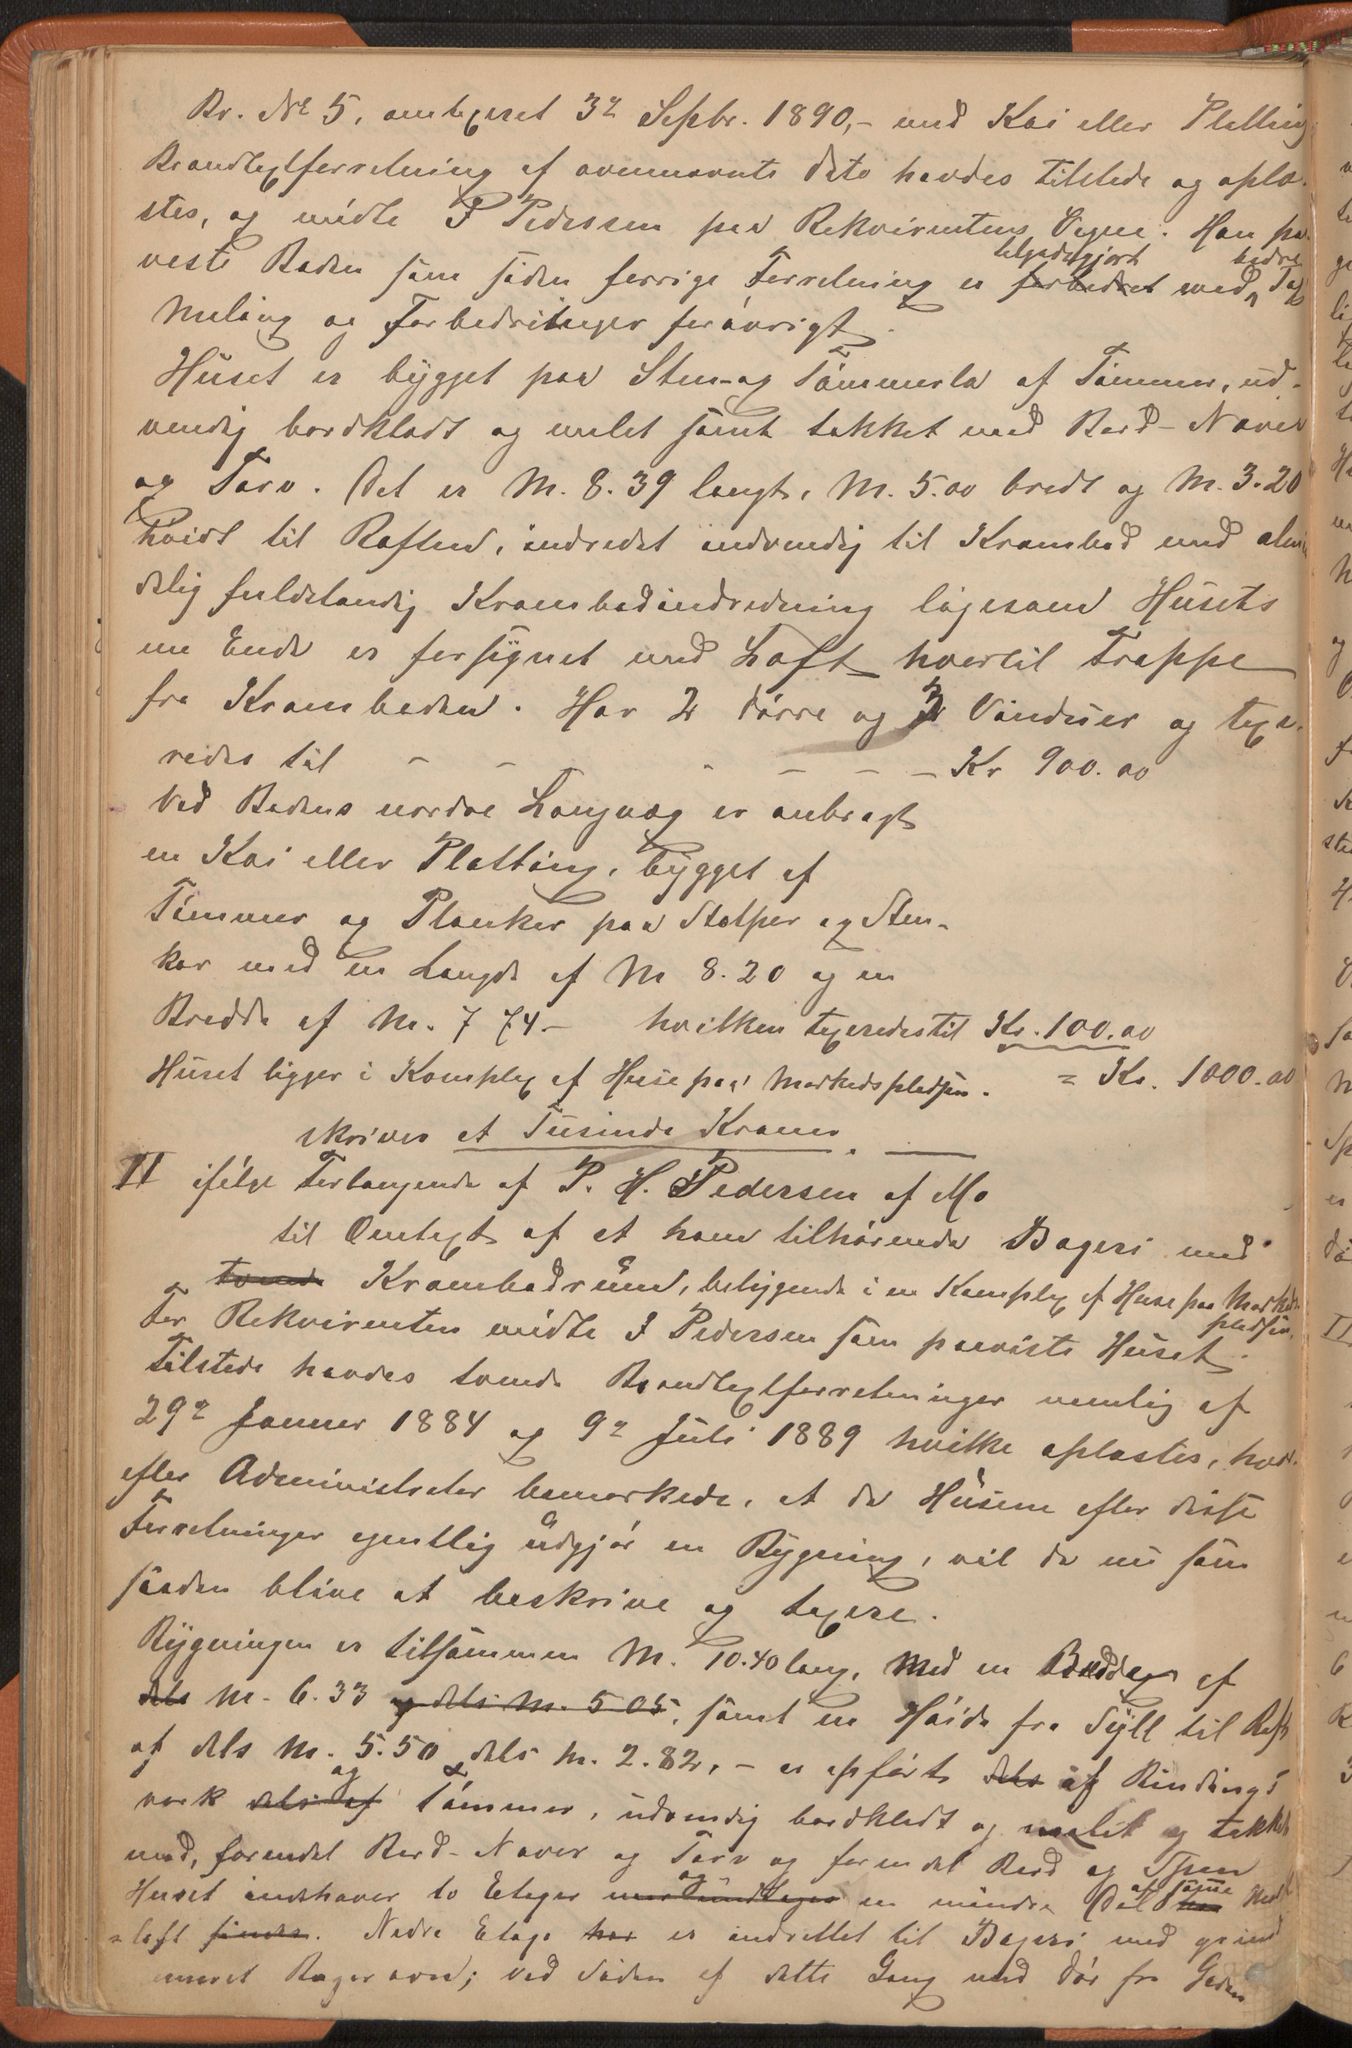 Br. № 5, omtaxeret 3die Septbr. 1890, - med Kai eller Platting
Brandtaxtforretning af ovennævnte Dato havdes tilstede og oplæ-
stes, og mødte P Pedersen paa Rekvirentens Vegne. Han paa-
viste Boden som siden forrige Forretning er forbedret tilgodegjort med bedre Tag,
Maling og Forbedringer forøvrigt.
Huset er bygget paa Sten- og Tømmerla af Tømmer, ud-
vendig bordklædt og malet samt tækket med Bord- Næver
og Torv. Det er M. 8.39 langt, M. 5.00 bredt og M. 3.20
høidt til Raften, indredet indvendig til Krambod med almin
delig fuldstændig Krambodindredning ligesom Husets
ene Ende er forsynet med Loft hvortil Trappe
fra Kramboden. Har 2 Dørre og 3 Vinduer og taxe-
redes til - - - - - - Kr 900.00
Ved Bodens nordre Langvæg er anbragt
en Kai eller Platting, bygget af
Tømmer og Planker paa Stolper og Sten-
kar med en Længde af M 8.20 og en
Bredde af M. 7 74 - hvilken taxeredes til Kr. 100.00
Huset ligger i Komplex af Huse paa Markedspladsen. = Kr. 1000.00
skriver et Tusinde Kroner. —
II ifølge Forlangende af P. H. Pedersen af Mo
til Omtaxt af et ham tilhørende Bageri med
tvende Krambodrum, beliggende i en Komplex af Huse paa Markeds
pladsen.
For Rekvirenten mødte J Pedersen som paaviste Huset.
Tilstede havdes tvende Brandtaxtforretninger nemlig af
29de Januar 1884 og 9de Juli 1889 hvilke oplæstes, hvor-
efter Administrator bemærkede, at da Husene efter disse
Forretninger egentlig udgjør en Bygning, vil de nu som
saadan blive at beskrive og taxere.
Bygningen er tilsammen M. 10.40 lang, Med en Bredde af
dels M. 6.33 og dels M. 5 05, samt en Høide fra Syll til Raft
af dels M. 5.50 & dels M. 2.82, - er opført dels af Bindings
værk dels af og Tømmer, udvendig bordklædt og malet og tækket
med, forendel Bord- Næver og Torv og forendel Bord og Spon
Huset indehaver to Etager med undtagen og en mindre Del af samme
sloft findes. Nedre Etage har er indrettet til Bageri med grund
muret Bagerovn; ved Siden af dette Gang med Dør fra Gaden